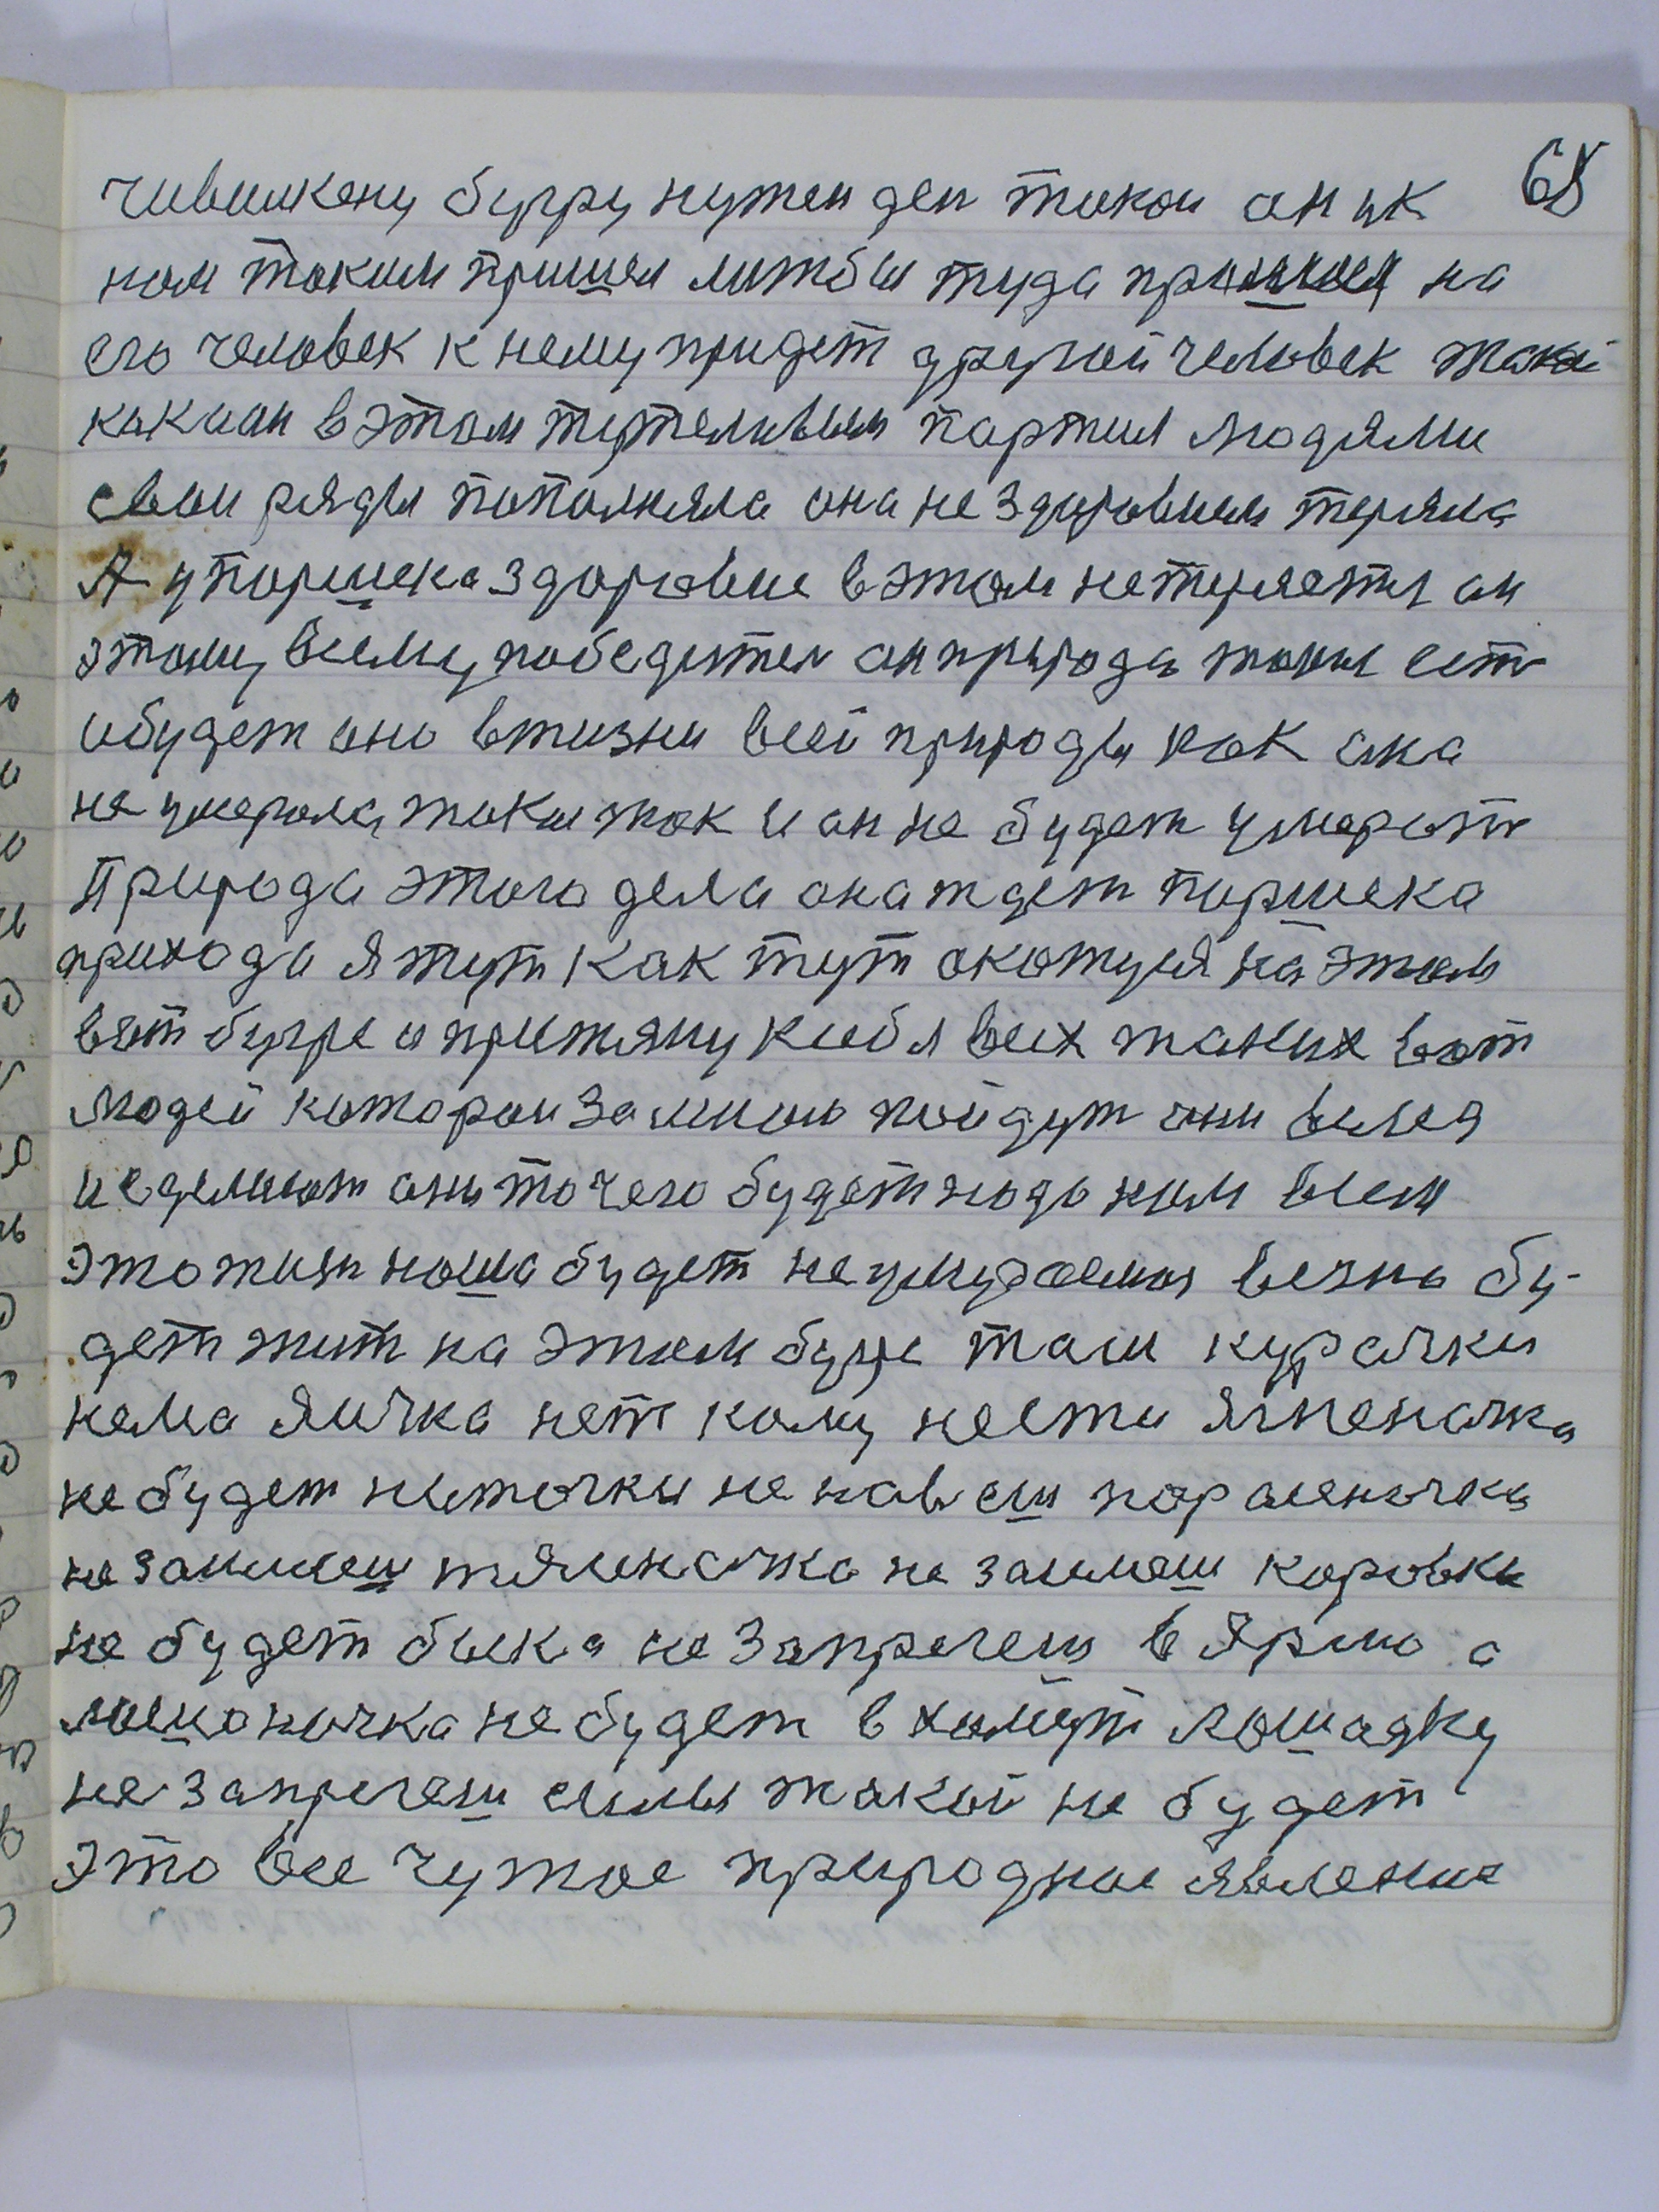 68
чивилкену бугру нужен ден такои он и к
нам таким пришел лижбы туда пришел на
его человек к нему придет другой человек такой
как и он в этом тутеливым партия людями
свои ряды пополняла она не здоровием теряла
А у паршека здоровие в этом не теряется он
этому всему победител он природа такие ест
и будет оно в жизни всей природы как она
не умерала таки так и он не будет умерат
Природа этого дела она ждет паршека
прихода я тут как тут окажуся на этом
вот бугре и притяну к себя всех таких вот
людей которои за мною пойдут они
и сделают они то чего будет надо ним всем
это жизн наша будет неумираемая вечно бу-
дет жит на этом бугре там курочки
нема яичка нет кому нести ягненочка
не будет ниточки не навеш поросеночка
не заимееш тялиночка не заимееш коровки
не будет быка не запрегеш в ярмо а
лошоночка не будет в хомут лошадку
не запрегеш силы такой не будет
это все чужое природное явление